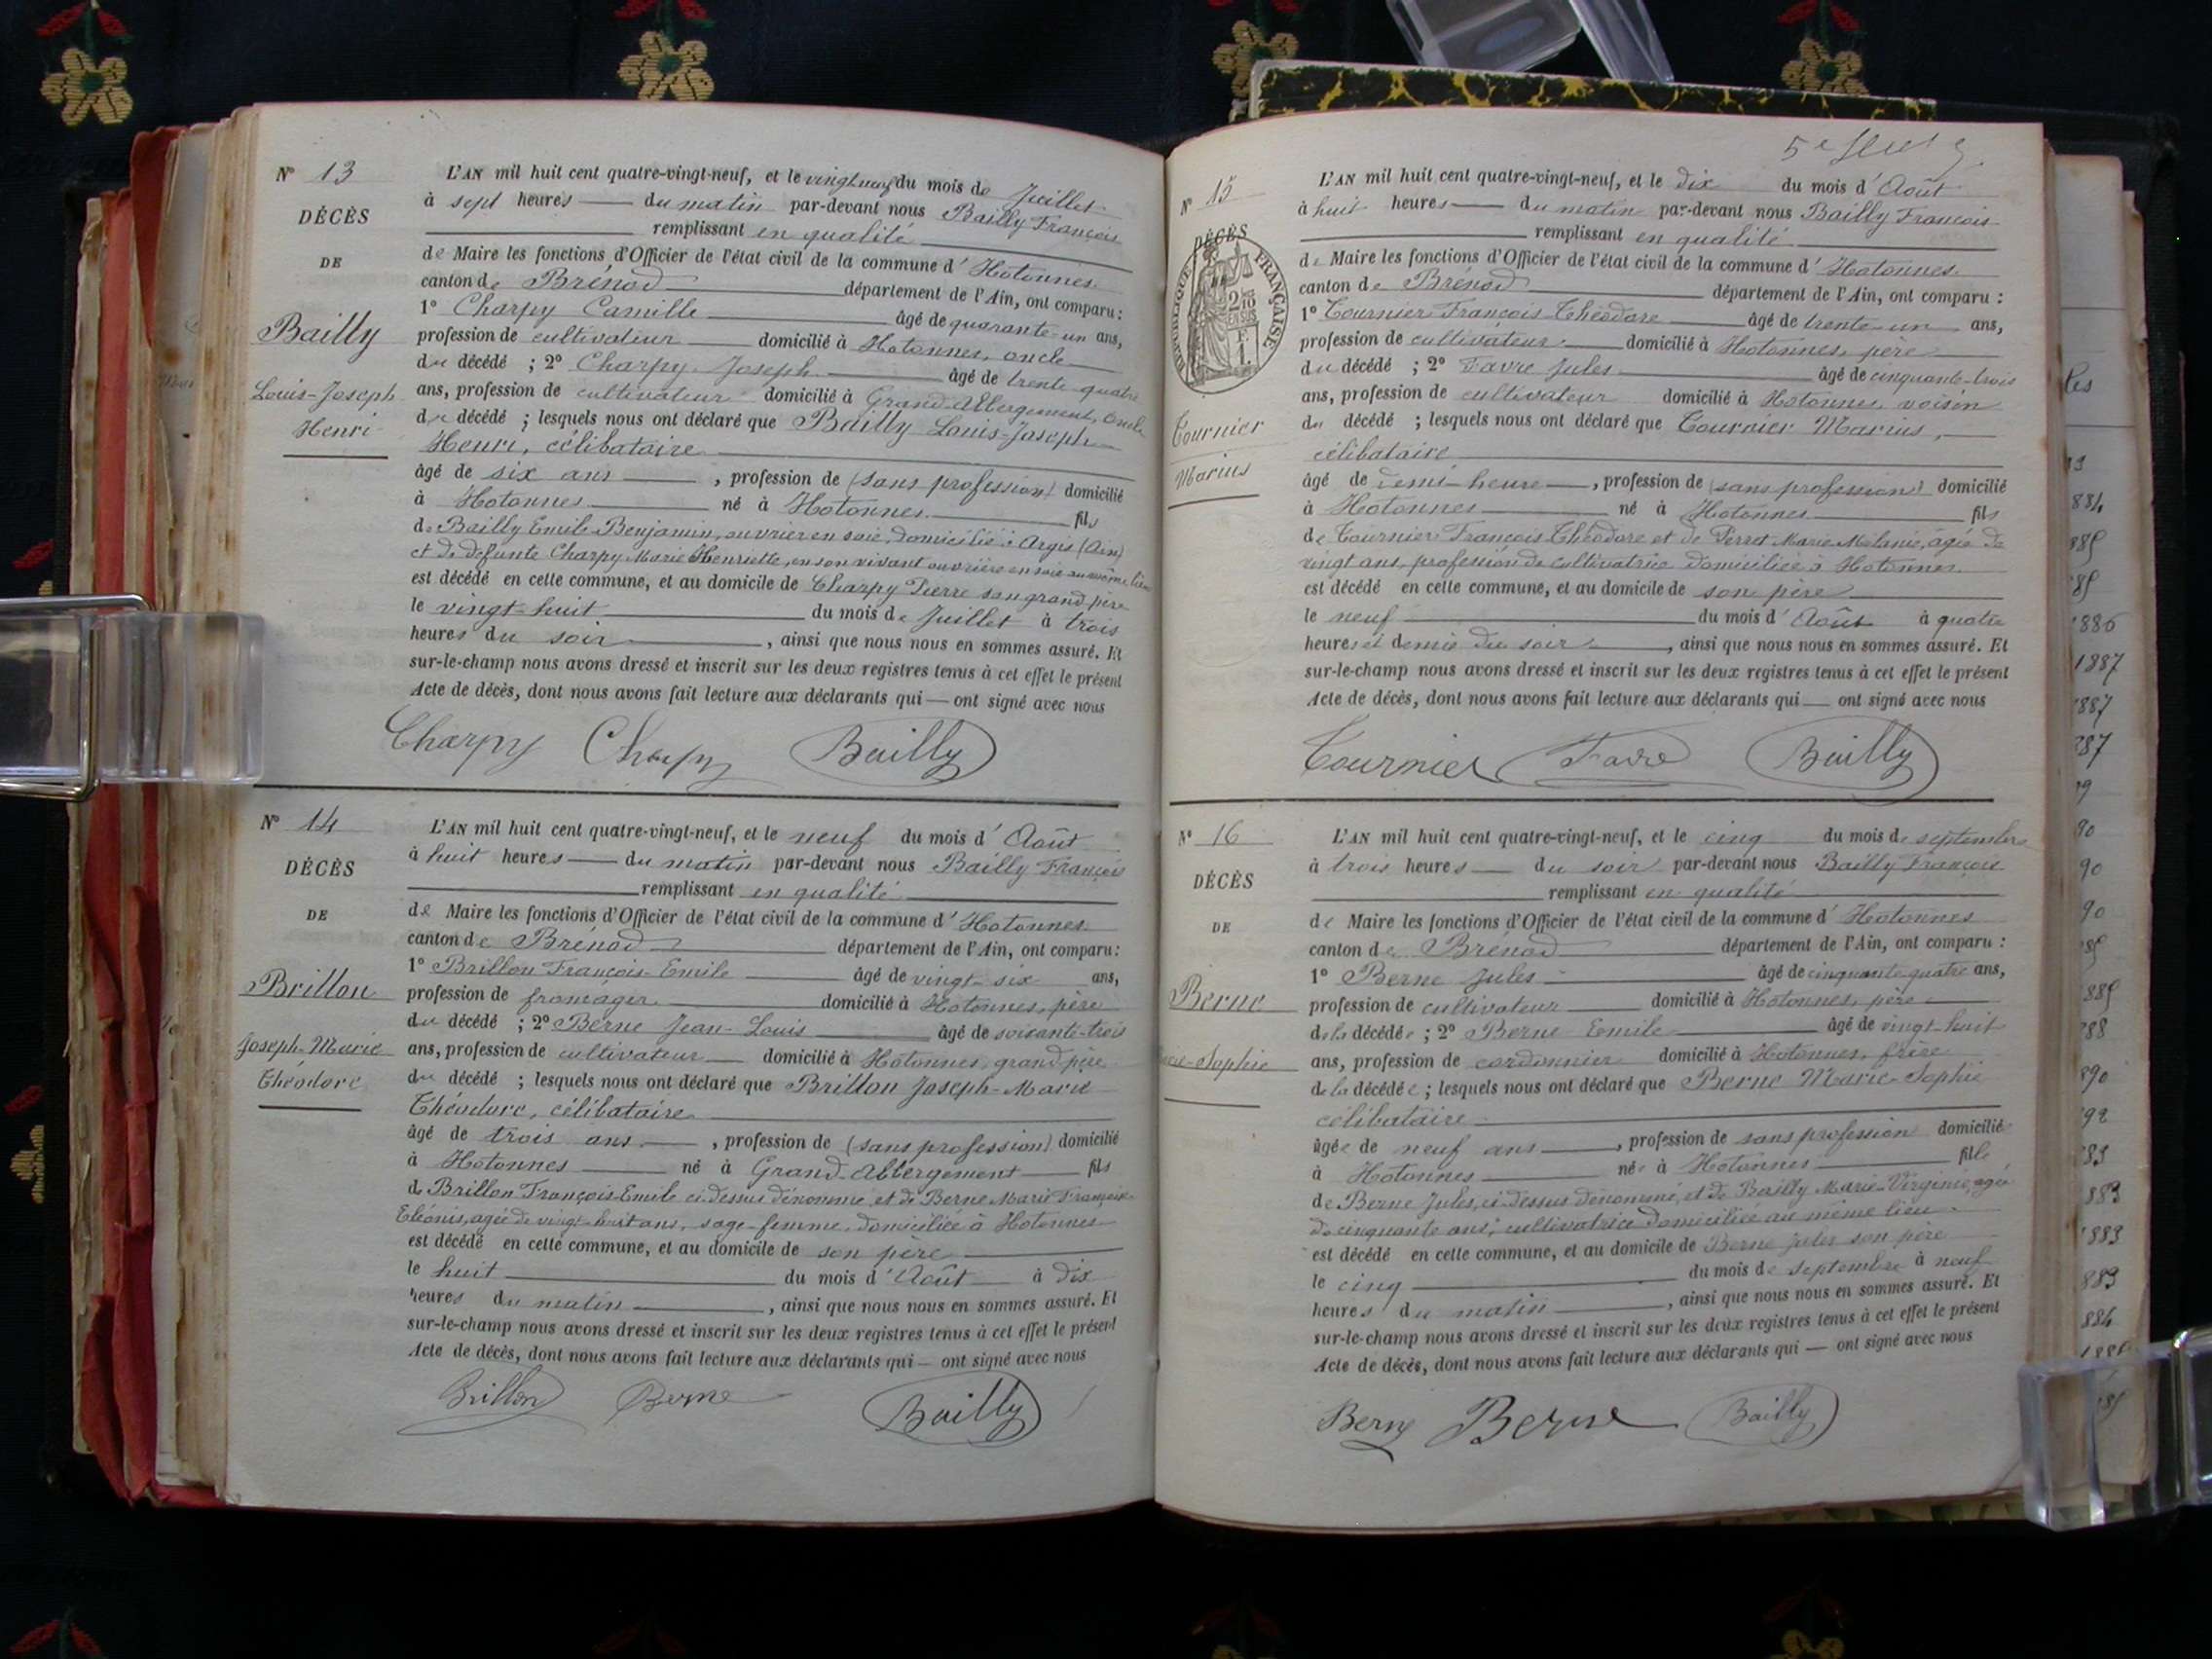 N° 13
DÉCÈS
DE
Bailly
Louis-Joseph
Henri
L'AN mil huit cent quatre-vingt-neuf, et le vingt neuf du mois de Juillet
à sept heures du matin par-devant nous Bailly François
remplissant en qualité
de Maire les fonctions d'Officier de l'état civil de la commune d'Hotonnes
canton de Brénod département de l'Ain, ont comparu :
1° Charpy Camille âgé de quarante-un ans,
profession de cultivateur domicilié à Hotonnes, oncle
du décédé ; 2° Charpy Joseph âgé de trente quatre
ans, profession de cultivateur domicilié à Grand-Abergement, oncle
du décédé ; lesquels nous ont déclaré que Bailly Louis-Joseph
Henri, célibataire
âgé de six ans, profession de (sans profession) domicilié
à Hotonnes né à Hotonnes fils
de Bailly Emile Benjamin, ouvrier en soie, domicilié à Argis (Ain)
et de défunte Charpy Marie Henriette, en son vivant ouvrière en soie au même lieu
est décédé en cette commune, et au domicile de Charpy Pierre son grand père
le vingt-huit du mois de Juillet à trois
heures du soir, ainsi que nous nous en sommes assuré. Et
sur-le-champ nous avons dressé et inscrit sur les deux registres tenus à cet effet le présent
Acte de décès, dont nous avons fait lecture aux déclarants qui — ont signé avec nous
Charpy Charpy Bailly
N° 14
DÉCÈS
DE
Brillon
Joseph-Marie
Théodore
L'AN mil huit cent quatre-vingt-neuf, et le neuf du mois d'Août
à huit heures du matin par-devant nous Bailly François
remplissant en qualité
de Maire les fonctions d'Officier de l'état civil de la commune d'Hotonnes
canton de Brénod département de l'Ain, ont comparu :
1° Brillon François-Emile âgé de vingt-six ans,
profession de fromager domicilié à Hotonnes, père
du décédé ; 2° Berne Jean-Louis âgé de soixante-trois
ans, profession de cultivateur domicilié à Hotonnes, grand père
du décédé ; lesquels nous ont déclaré que Brillon Joseph-Marie
Théodore, célibataire
âgé de trois ans, profession de (sans profession) domicilié
à Hotonnes né à Grand-Abergement fils
de Brillon François-Emile ci-dessus dénommé et de Berne Marie Françoise
Eléonis, agée de vingt-huit ans, sage-femme, domiciliée à Hotonnes
est décédé en cette commune, et au domicile de son père
le huit du mois d'Août à dix
heures du matin, ainsi que nous nous en sommes assuré. Et
sur-le-champ nous avons dressé et inscrit sur les deux registres tenus à cet effet le présent
Acte de décès, dont nous avons fait lecture aux déclarants qui — ont signé avec nous
Brillon Berne Bailly
5e
N° 15
DÉCÈS
RÉPUBLIQUE FRANÇAISE
Tournier
Marius
L'AN mil huit cent quatre-vingt-neuf, et le dix du mois d'Août
à huit heures du matin par-devant nous Bailly François
remplissant en qualité
de Maire les fonctions d'Officier de l'état civil de la commune d'Hotonnes
canton de Brénod département de l'Ain, ont comparu :
1° Tournier François-Théodore âgé de trente-un ans,
profession de cultivateur domicilié à Hotonnes, père
du décédé ; 2° Favre Jules âgé de cinquante-trois
ans, profession de cultivateur domicilié à Hotonnes, voisin
du décédé ; lesquels nous ont déclaré que Tournier Marius,
célibataire
âgé de demi-heure, profession de (sans profession) domicilié
à Hotonnes né à Hotonnes fils
de Tournier François Théodore et de Perrot Marie Mélanie, agée de
vingt ans, profession de cultivatrice domiciliée à Hotonnes.
est décédé en cette commune, et au domicile de son père
le neuf du mois d'Août à quatre
heures et demie du soir, ainsi que nous nous en sommes assuré. Et
sur-le-champ nous avons dressé et inscrit sur les deux registres tenus à cet effet le présent
Acte de décès, dont nous avons fait lecture aux déclarants qui — ont signé avec nous
Tournier Favre Bailly
N° 16
DÉCÈS
DE
Berne
-Sophie
L'AN mil huit cent quatre-vingt-neuf, et le cinq du mois de septembre
à trois heures du soir par-devant nous Bailly François
remplissant en qualité
de Maire les fonctions d'Officier de l'état civil de la commune d'Hotonnes
canton de Brénod département de l'Ain, ont comparu :
1° Berne Jules âgé de cinquante quatre ans,
profession de cultivateur domicilié à Hotonnes, père
de la décédée ; 2° Berne Emile âgé de vingt-huit
ans, profession de cordonnier domicilié à Hotonnes, frère
de la décédée ; lesquels nous ont déclaré que Berne Marie-Sophie
célibataire
âgée de neuf ans, profession de sans profession domicilié
à Hotonnes née à Hotonnes fille
de Berne Jules, ci-dessus dénommé, et de Bailly Marie-Virginie, agée
de cinquante ans, cultivatrice domiciliée au même lieu
est décédé en cette commune, et au domicile de Berne Jules son père
le cinq du mois de septembre à neuf
heures du matin, ainsi que nous nous en sommes assuré. Et
sur-le-champ nous avons dressé et inscrit sur les deux registres tenus à cet effet le présent
Acte de décès, dont nous avons fait lecture aux déclarants qui — ont signé avec nous
Berne Berne Bailly
1887